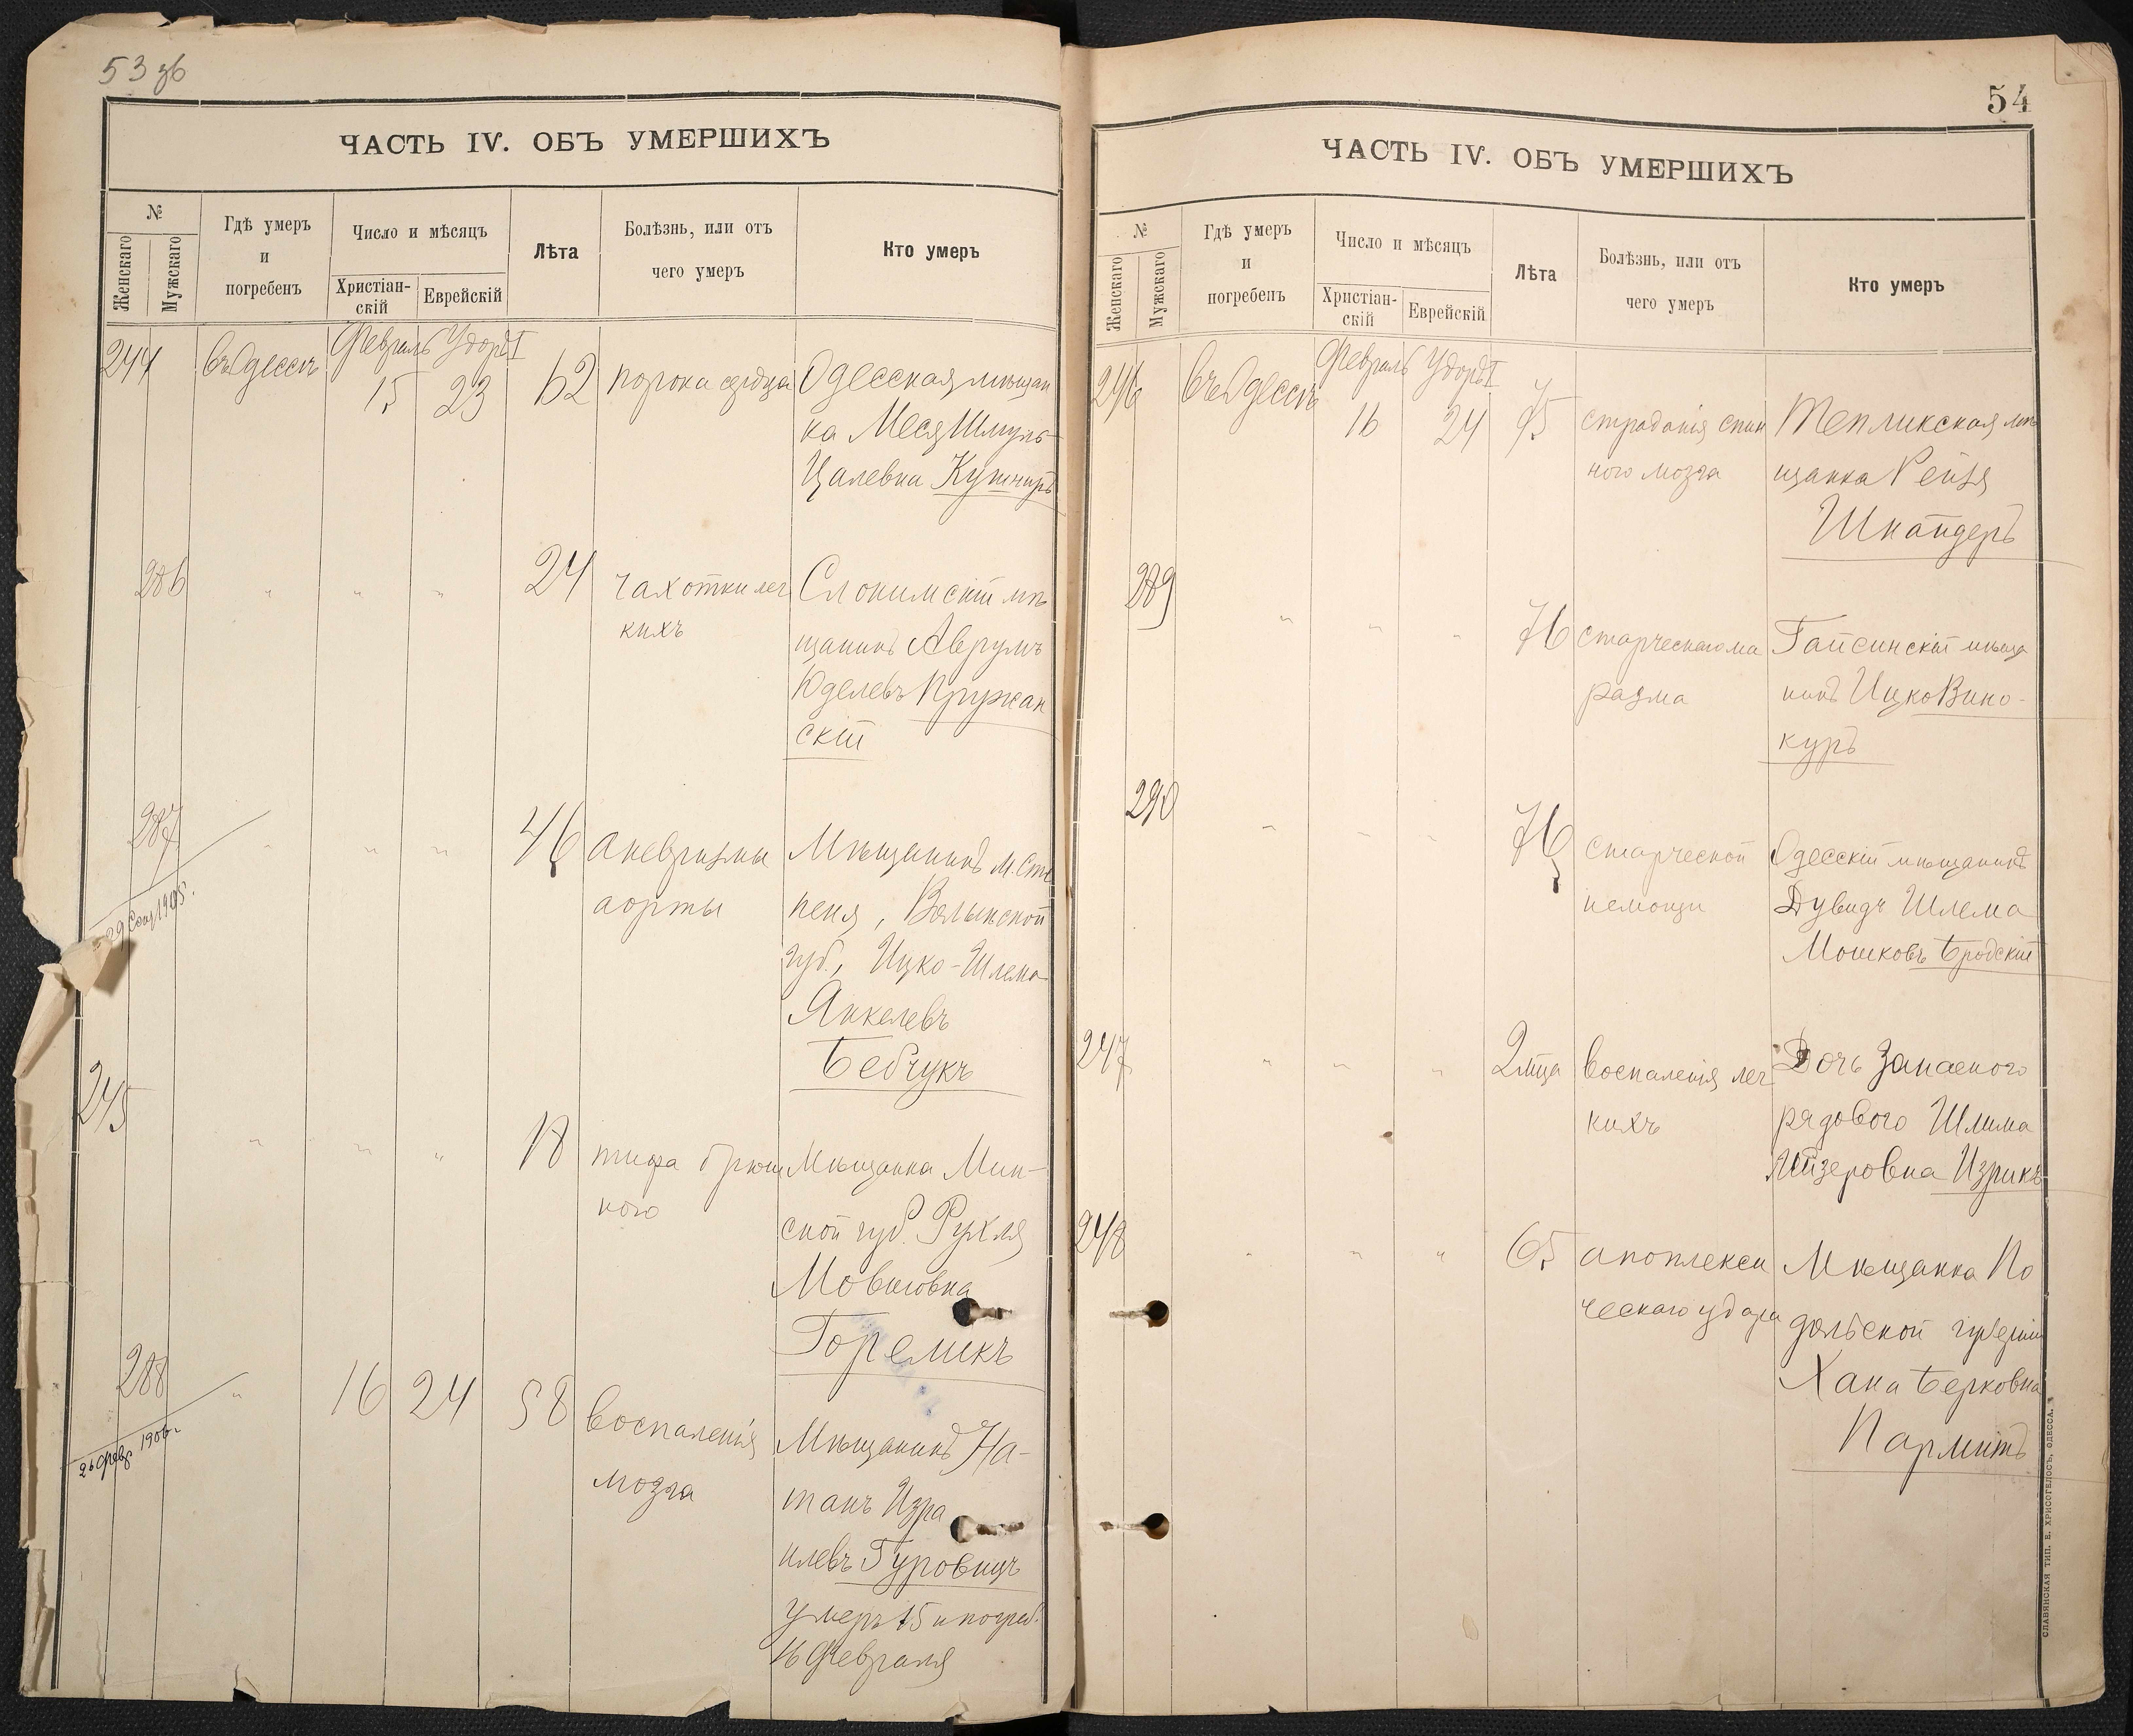 53 зв
ЧАСТЬ IV. ОБЪ УМЕРШИХЪ
№
Женскаго
Мужскаго
Гдѣ умеръ
и
погребенъ
Число и мѣсяцъ
Христіан-
скій
Еврейскій
Лѣта
Болѣзнь, или отъ
чего умеръ
Кто умеръ
244 въ Одессѣ Февраль 15 23 62 порока сердца Одесская мѣщан
ка Меся Шмуль-
Цалевна Кушниръ
286 " " " 24 чахотки лег
кихъ
Слонимскій мѣ
щанинъ Аврумъ
Юделевъ Пружан
скій
287 " " " 46 аневризмы
аорты
Мѣщанинъ м. Сте
пеня, Волынской
губ., Ицко-Шлема
Янкелевъ
Бебчукъ
1905.
245 " " " 18 тифа брюш
ного
Мѣщанка Мин-
ской губ. Рухля
Мовшовна
Гореликъ
288 " 16 24 58 воспаленія
мозга
Мѣщанинъ На-
танъ Изра
илевъ Гуровичъ
умеръ 15 и погреб.
16 Февраля
26 февр. 1906 г.
54
ЧАСТЬ IV. ОБЪ УМЕРШИХЪ
№
Женскаго
Мужскаго
Гдѣ умеръ
и
погребенъ
Число и мѣсяцъ
Христіан-
скій
Еврейскій
Лѣта
Болѣзнь, или отъ
чего умеръ
Кто умеръ
246 въ Одессѣ Февраль 16 24 75 страданія спин
ного мозга
Тепликская мѣ
щанка Рейзя
Шнайдеръ
289 " " " 76 старческаго ма
разма
Гайсинскій мѣща
нинъ Ицко Вино-
куръ
290 " " " 76 старческой
немощи
Одесскій мѣщанинъ
Дувидъ Шлема
Мошковъ Бродскій
247 " " " 2 мца воспаленія лег
кихъ
Дочь запасного
рядового Шлима
Лейзеровна Изрикъ
248 " " " 65 апоплекси
ческаго удара
Мѣщанка По
дольской губерніи
Хана Берковна
Пармитъ
СЛАВЯНСКАЯ ТИП. Е. ХРИСОГЕЛОСЪ, ОДЕССА.